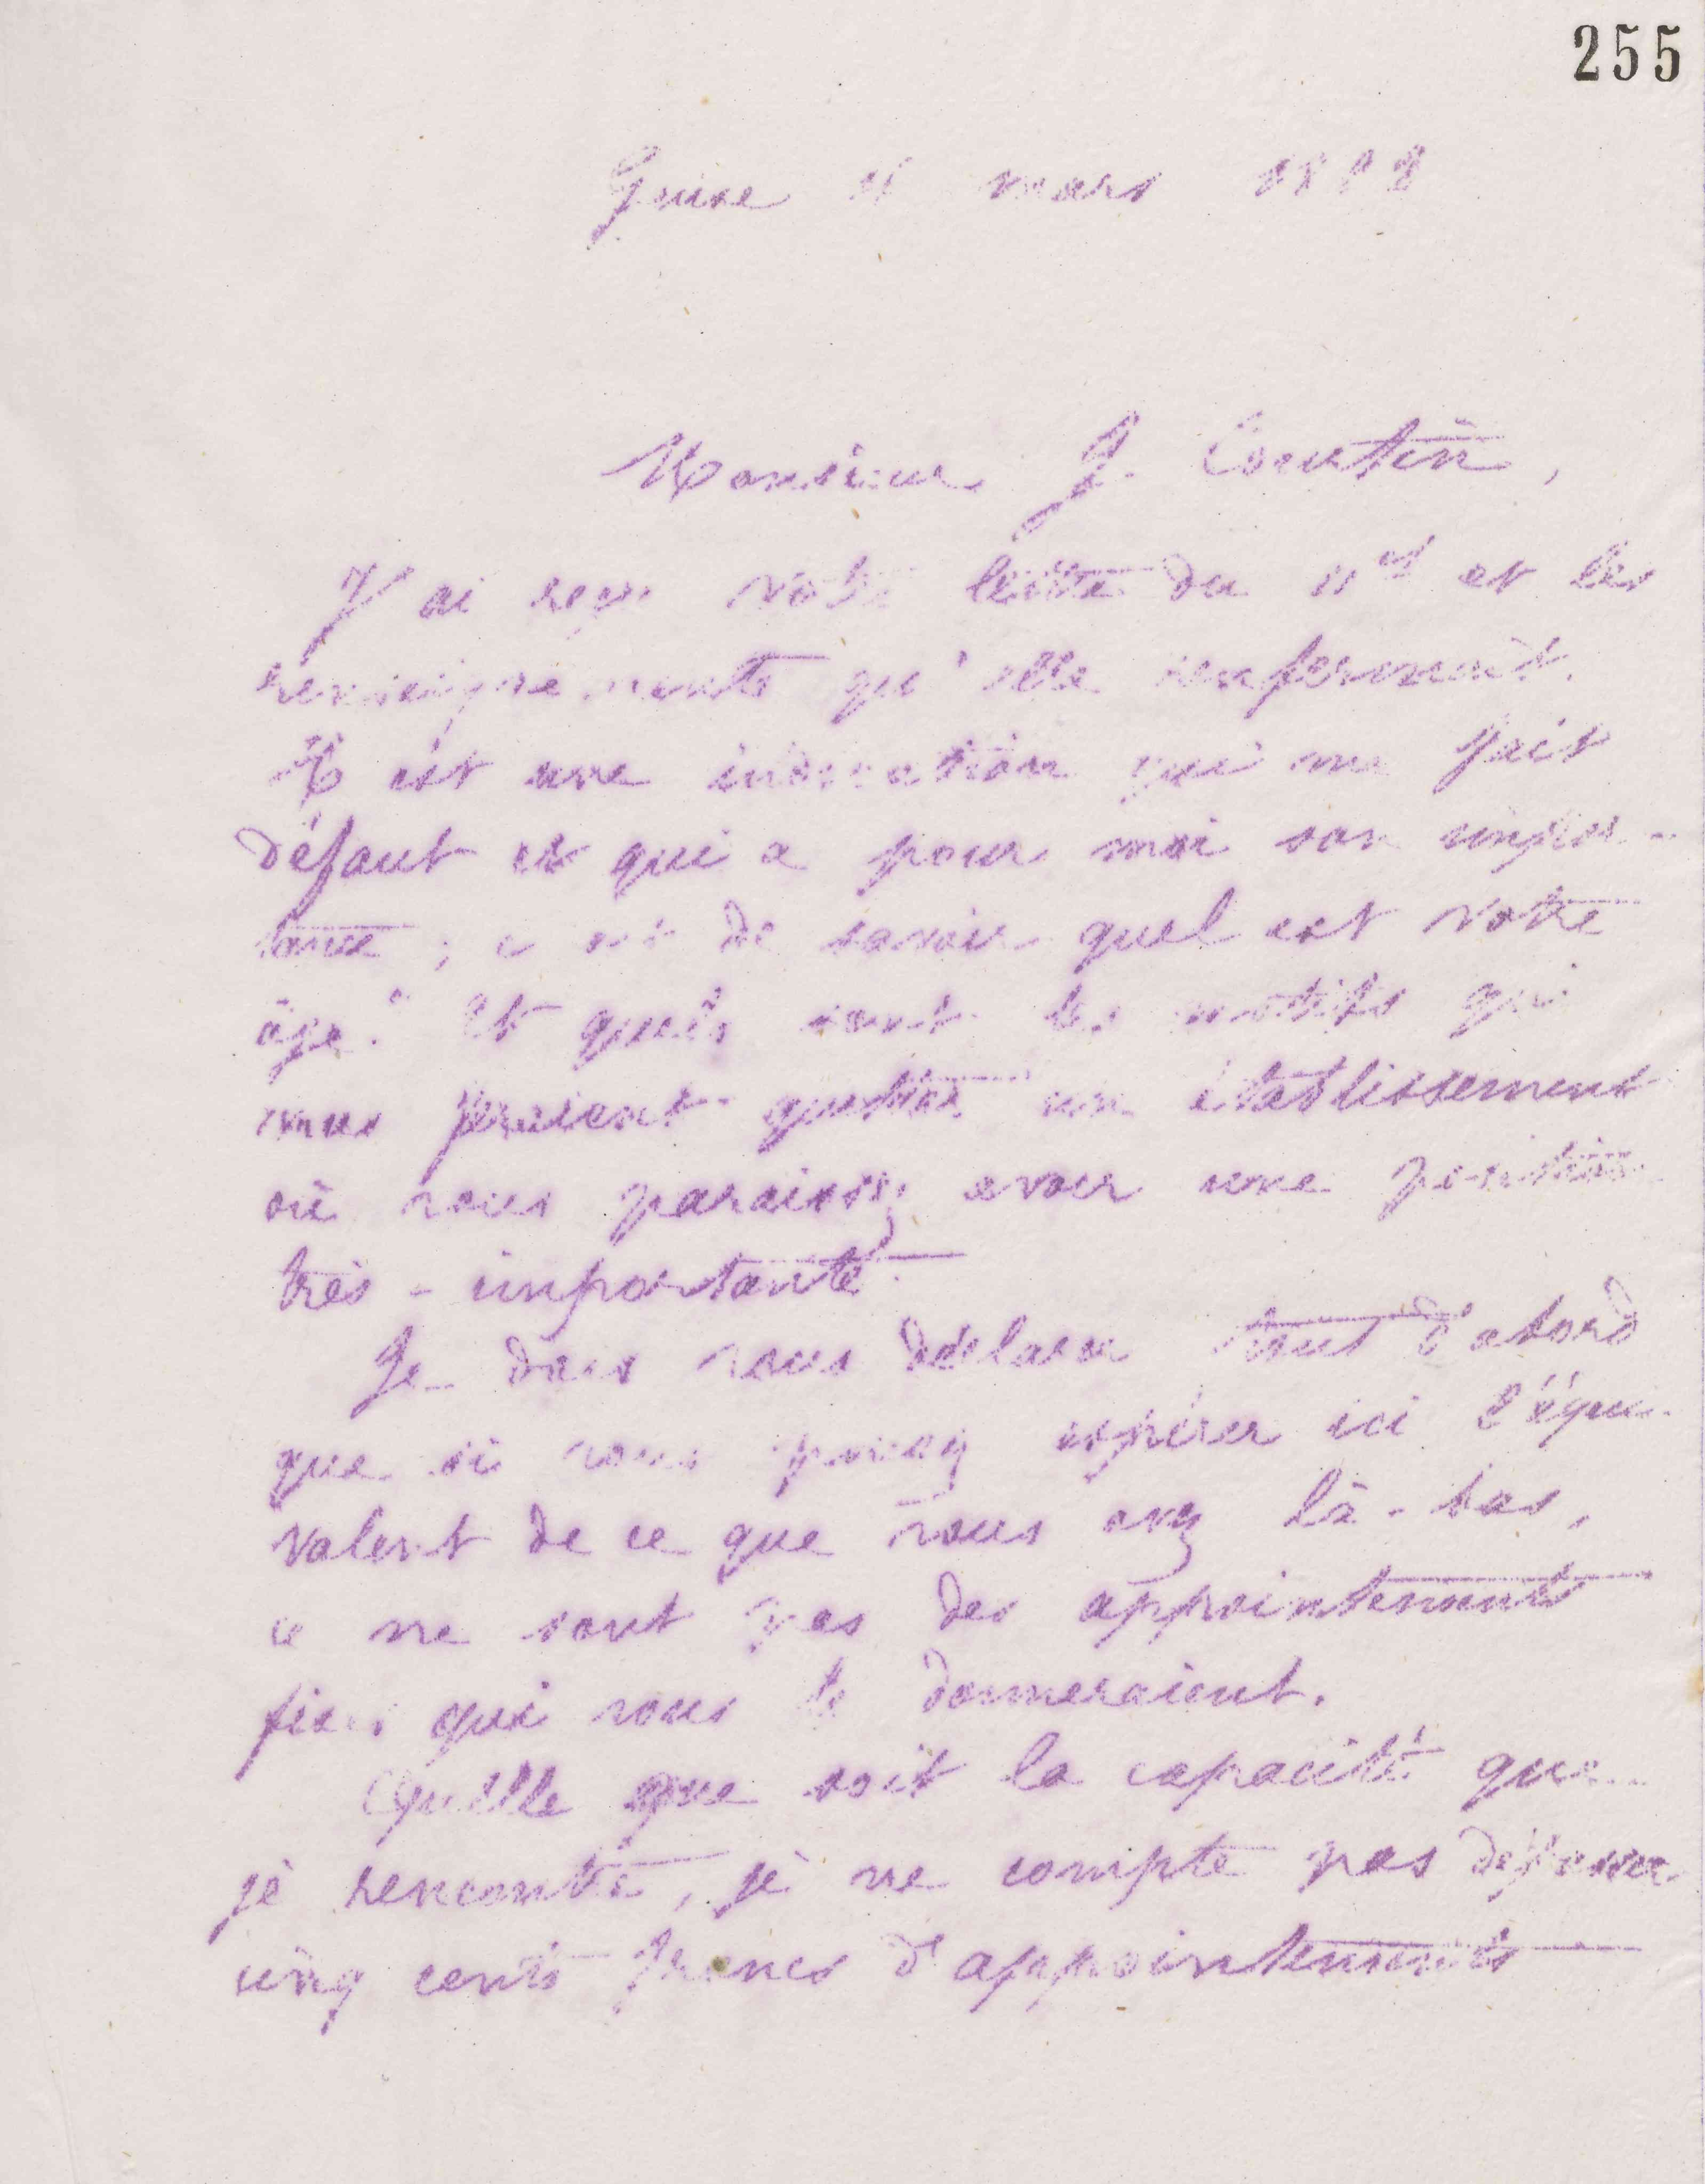 255
Guise mars
Monsieur J. Coustin,
J'ai reçu votre lettre du 11 ct et les
renseignements qu'elle renfermait.
Il est une indication qui me fait
défaut et qui a pour moi son impor-
tance ; c'est de savoir quel est votre
âge. Et quels sont les motifs qui
vous feraient quitter un établissement
où vous paraissez avoir une position
très-importante.
Je dois vous déclarer tout d'abord
que si vous pouvez espérer ici l'équi-
valent de ce que vous avez là-bas,
ce ne sont pas des appointements
fixes qui vous le donneraient.
Quelle que soit la capacité que
je rencontre, je ne compte pas dépasser
cinq cents francs d'appointements